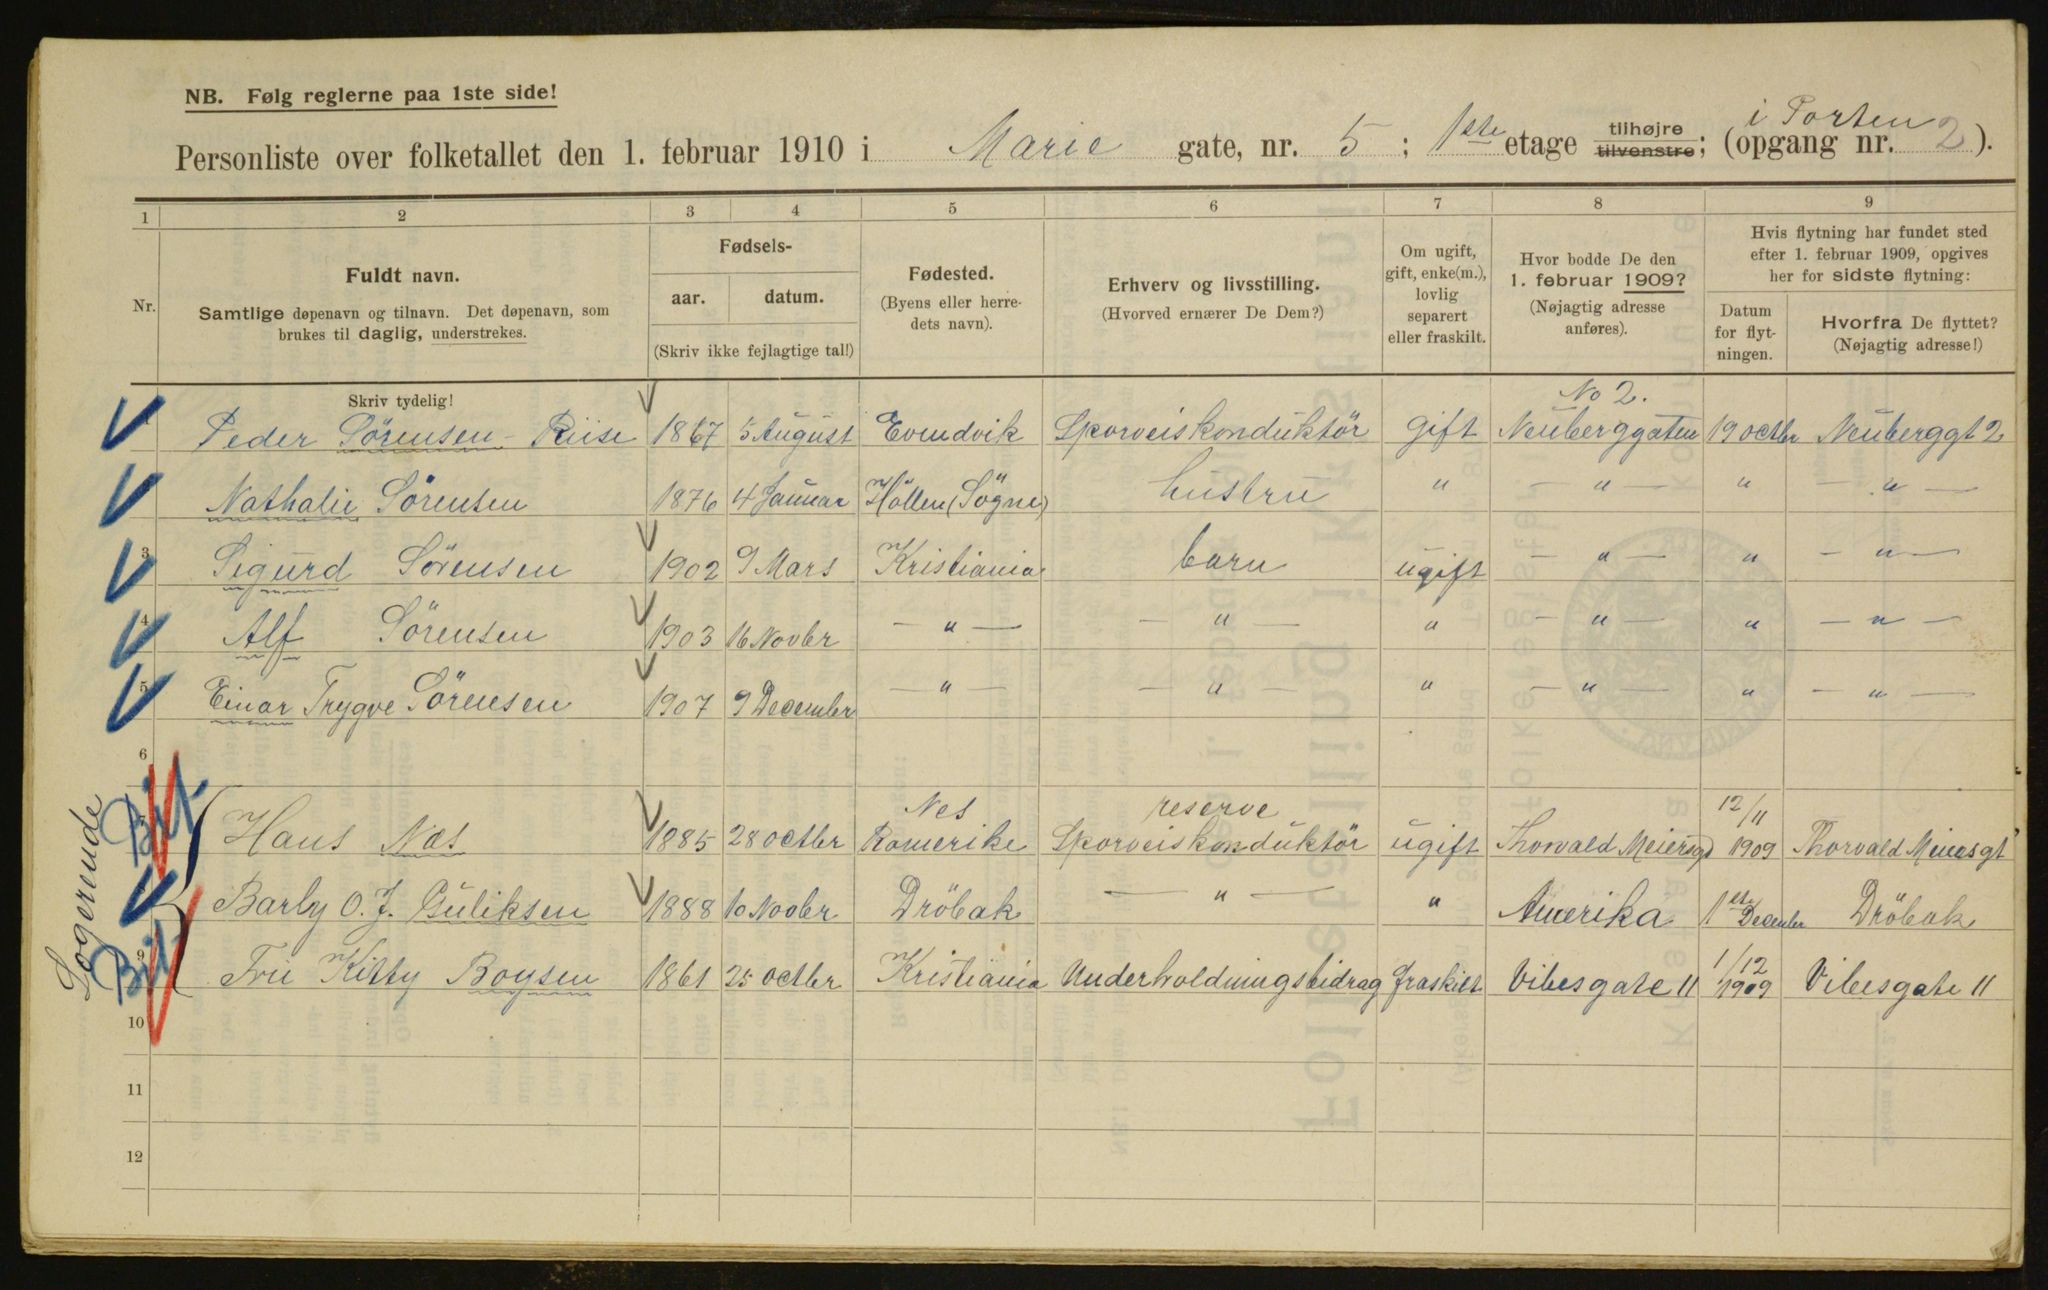 NB. Følg reglerne paa 1ste side!
Personliste over folketallet den 1. februar 1910 i Marie gate, nr. 5 ; 1ste etage tilhøjre tilvenstre; i Porten (opgang nr. 2).
1 2 3 4 5 6 7 8 9
Nr.
Fuldt navn.
Samtlige døpenavn og tilnavn. Det døpenavn, som
brukes til daglig, understrekes.
Fødsels-
aar. datum.
(Skriv ikke fejlagtige tal!)
Fødested.
(Byens eller herre-
dets navn).
Erhverv og livsstilling.
(Hvorved ernærer De Dem?)
Om ugift,
gift, enke(m.),
lovlig
separert
eller fraskilt.
Hvor bodde De den
1. februar 1909?
(Nøjagtig adresse
anføres).
Hvis flytning har fundet sted
efter 1. februar 1909, opgives
her for sidste flytning:
Datum
for flyt-
ningen.
Hvorfra De flyttet?
(Nøjagtig adresse!)
Skriv tydelig!
No 2.
Peder Sörensen-Riise 1867 5 August Evendvik Sporveiskonduktör gift Neuberggaten 19 octbr Neuberggt 2
Nathalie Sörensen 1876 4 Januar Höllen (Sögne) hustru " — " — " — " —
3 Sigurd Sörensen 1902 9 Mars Kristiania barn ugift — " — " — " —
4 Alf Sörensen 1903 16 Novbr — " — — " — " — " — " — " —
5 Einar Trygve Sörensen 1907 9 December — " — — " — " — " — " — " —
6
Logerende
Bit Hans Næs 1885 28 octbr Nes Romerike reserve Sporveiskonduktör ugift Thorvald Meiersgd 12/11 1909 Thorvald Meiersgt
Barly O. J. Guliksen 1888 10 Novbr Dröbak — " — " Amerika 1ste December Dröbak
Bit 9 Fru Kitty Boysen 1861 25 octbr Kristiania Underholdningsbidrag fraskilt Vibesgate 11 1/12 1909 Vibesgate 11
10
11
12